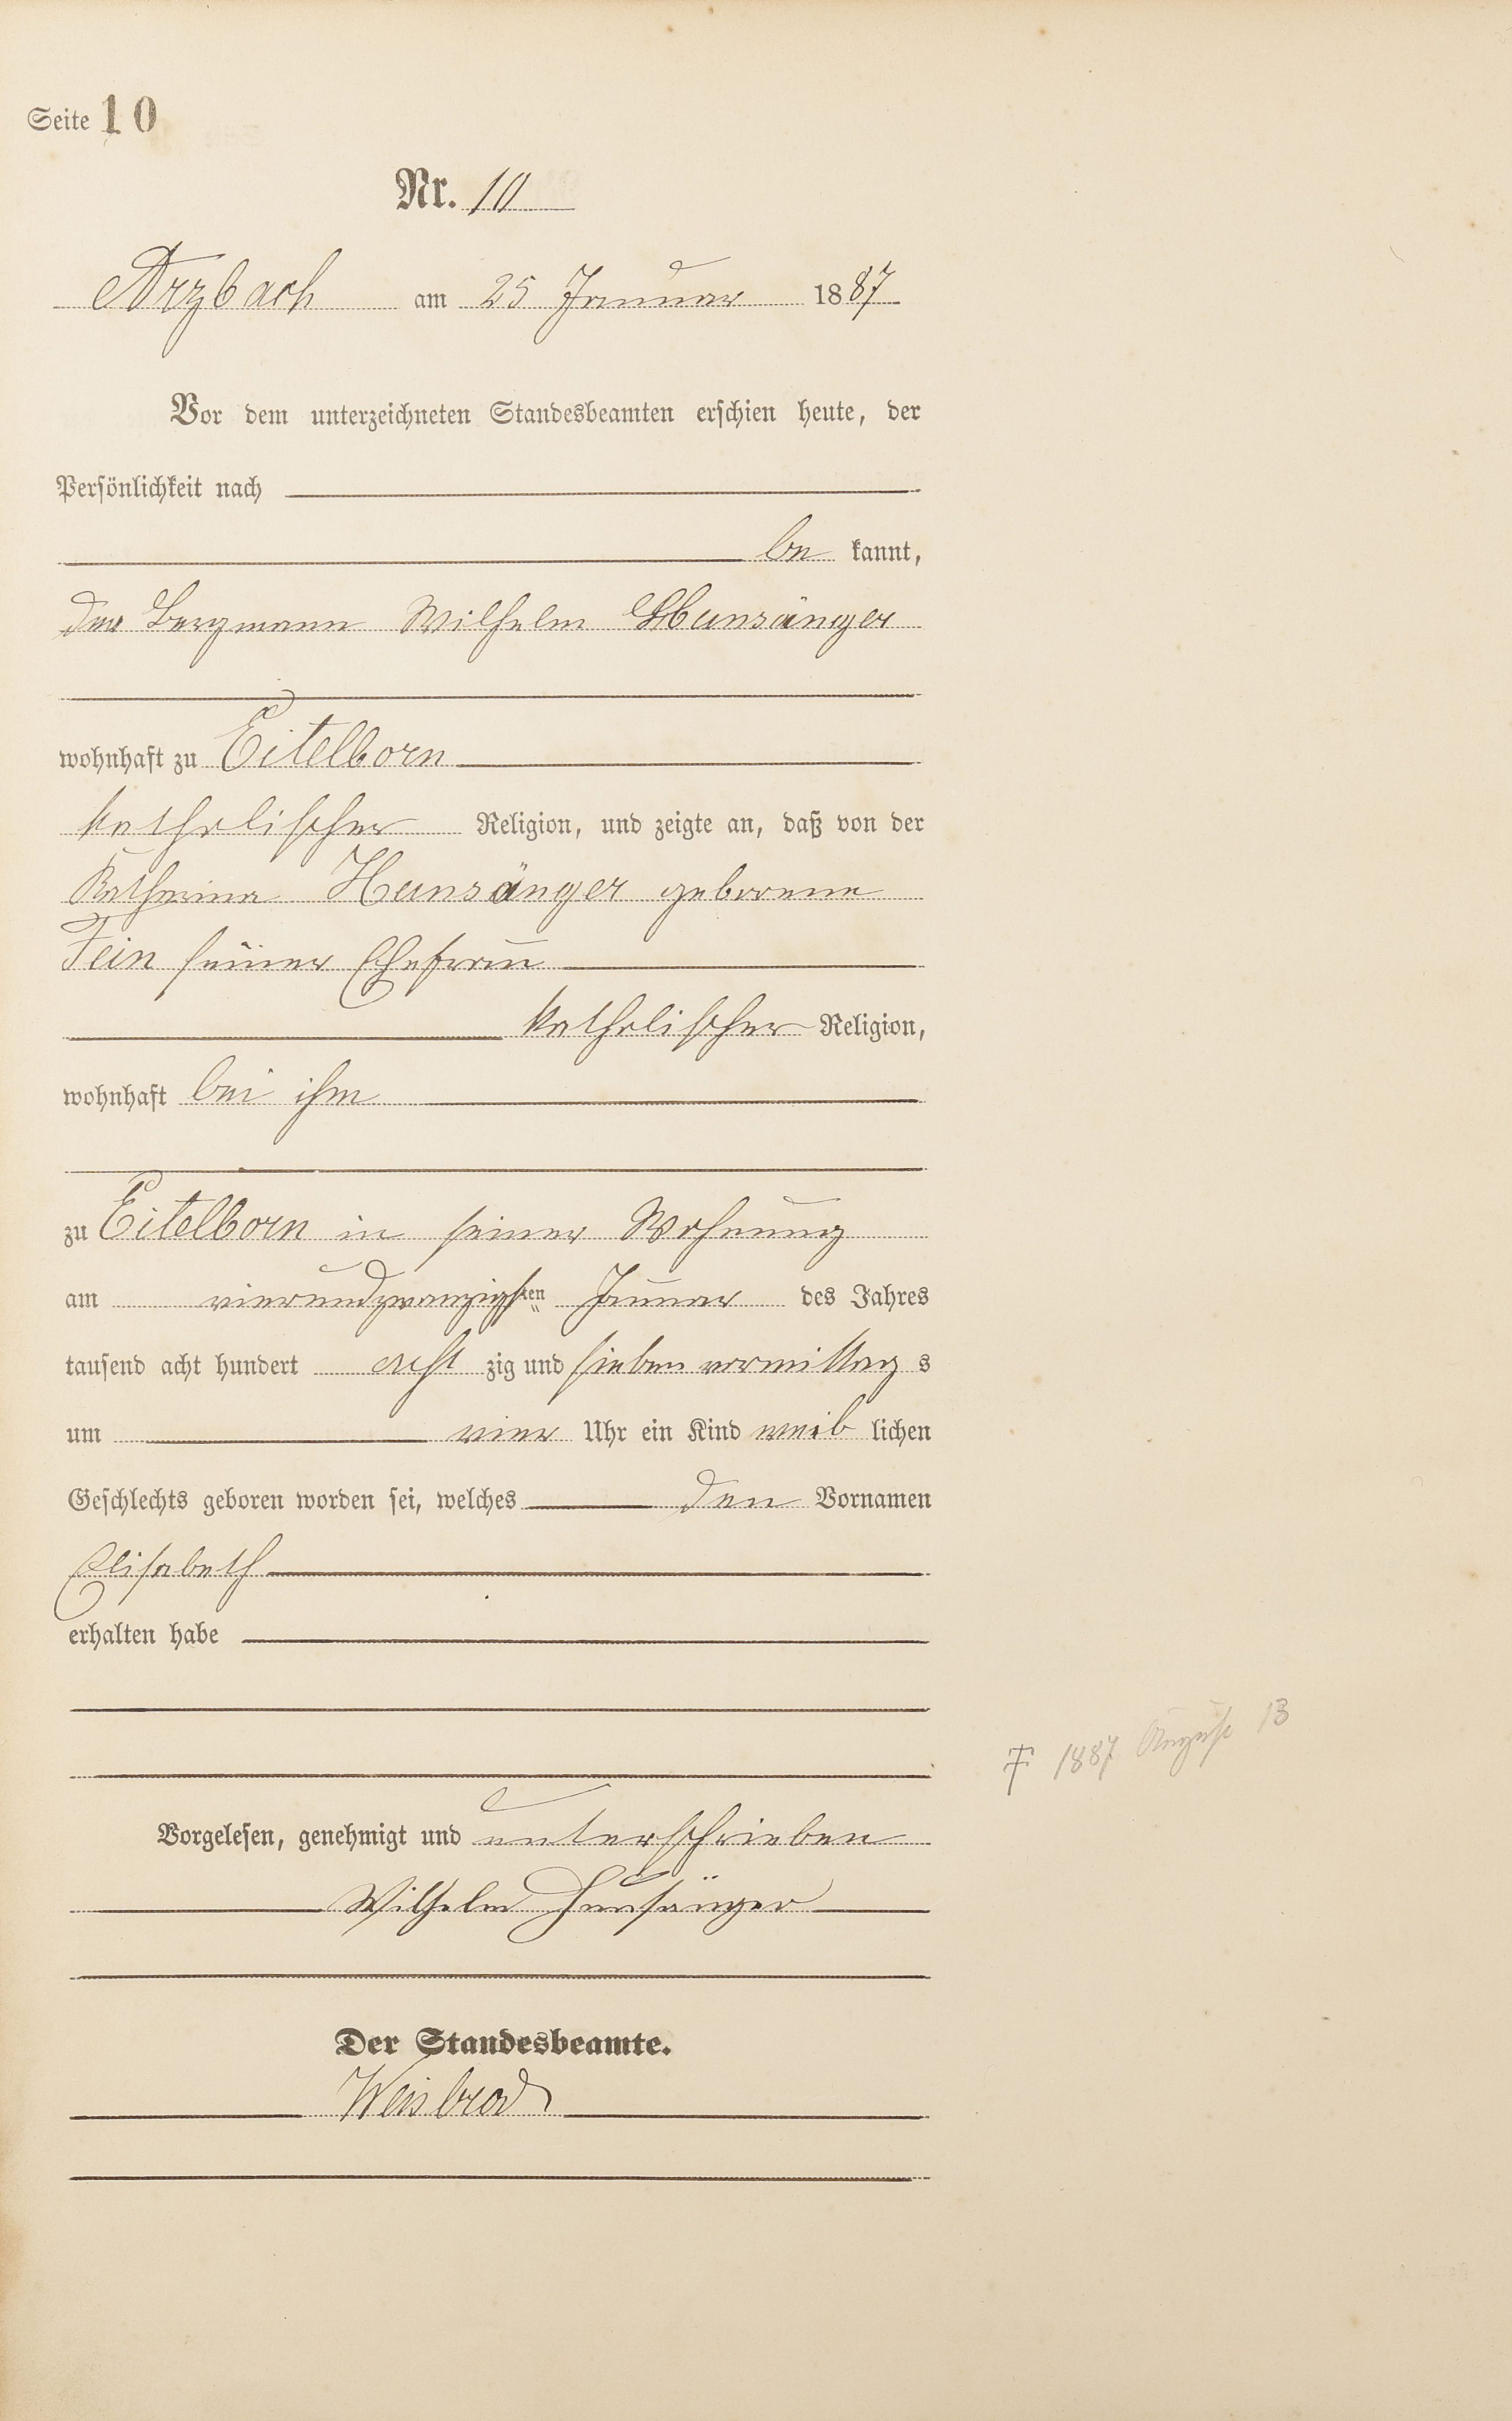 Seite 10
Nr. 10
Arzbach am 25 Januar 1887
Vor dem unterzeichneten Standesbeamten erschien heute, der
Persönlichkeit nach
be kannt,
der Bergmann Wilhelm Hunsänger
wohnhaft zu Eitelborn
katholischer Religion, und zeigte an, daß von der
Katharina Hunsänger geborene
Fein seiner Ehefrau
katholischer Religion,
wohnhaft bei ihm
zu Eitelborn in seiner Wohnung
am vierundzwanzigsten Januar des Jahres
tausend acht hundert acht zig und sieben vormittag s
um vier Uhr ein Kind weib lichen
Geschlechts geboren worden sei, welches den Vornamen
Elisabeth
erhalten habe
† 1887 August 13
Vorgelesen, genehmigt und unterschrieben
Wilhelm Hunsänger
Der Standesbeamte.
Weisbrod